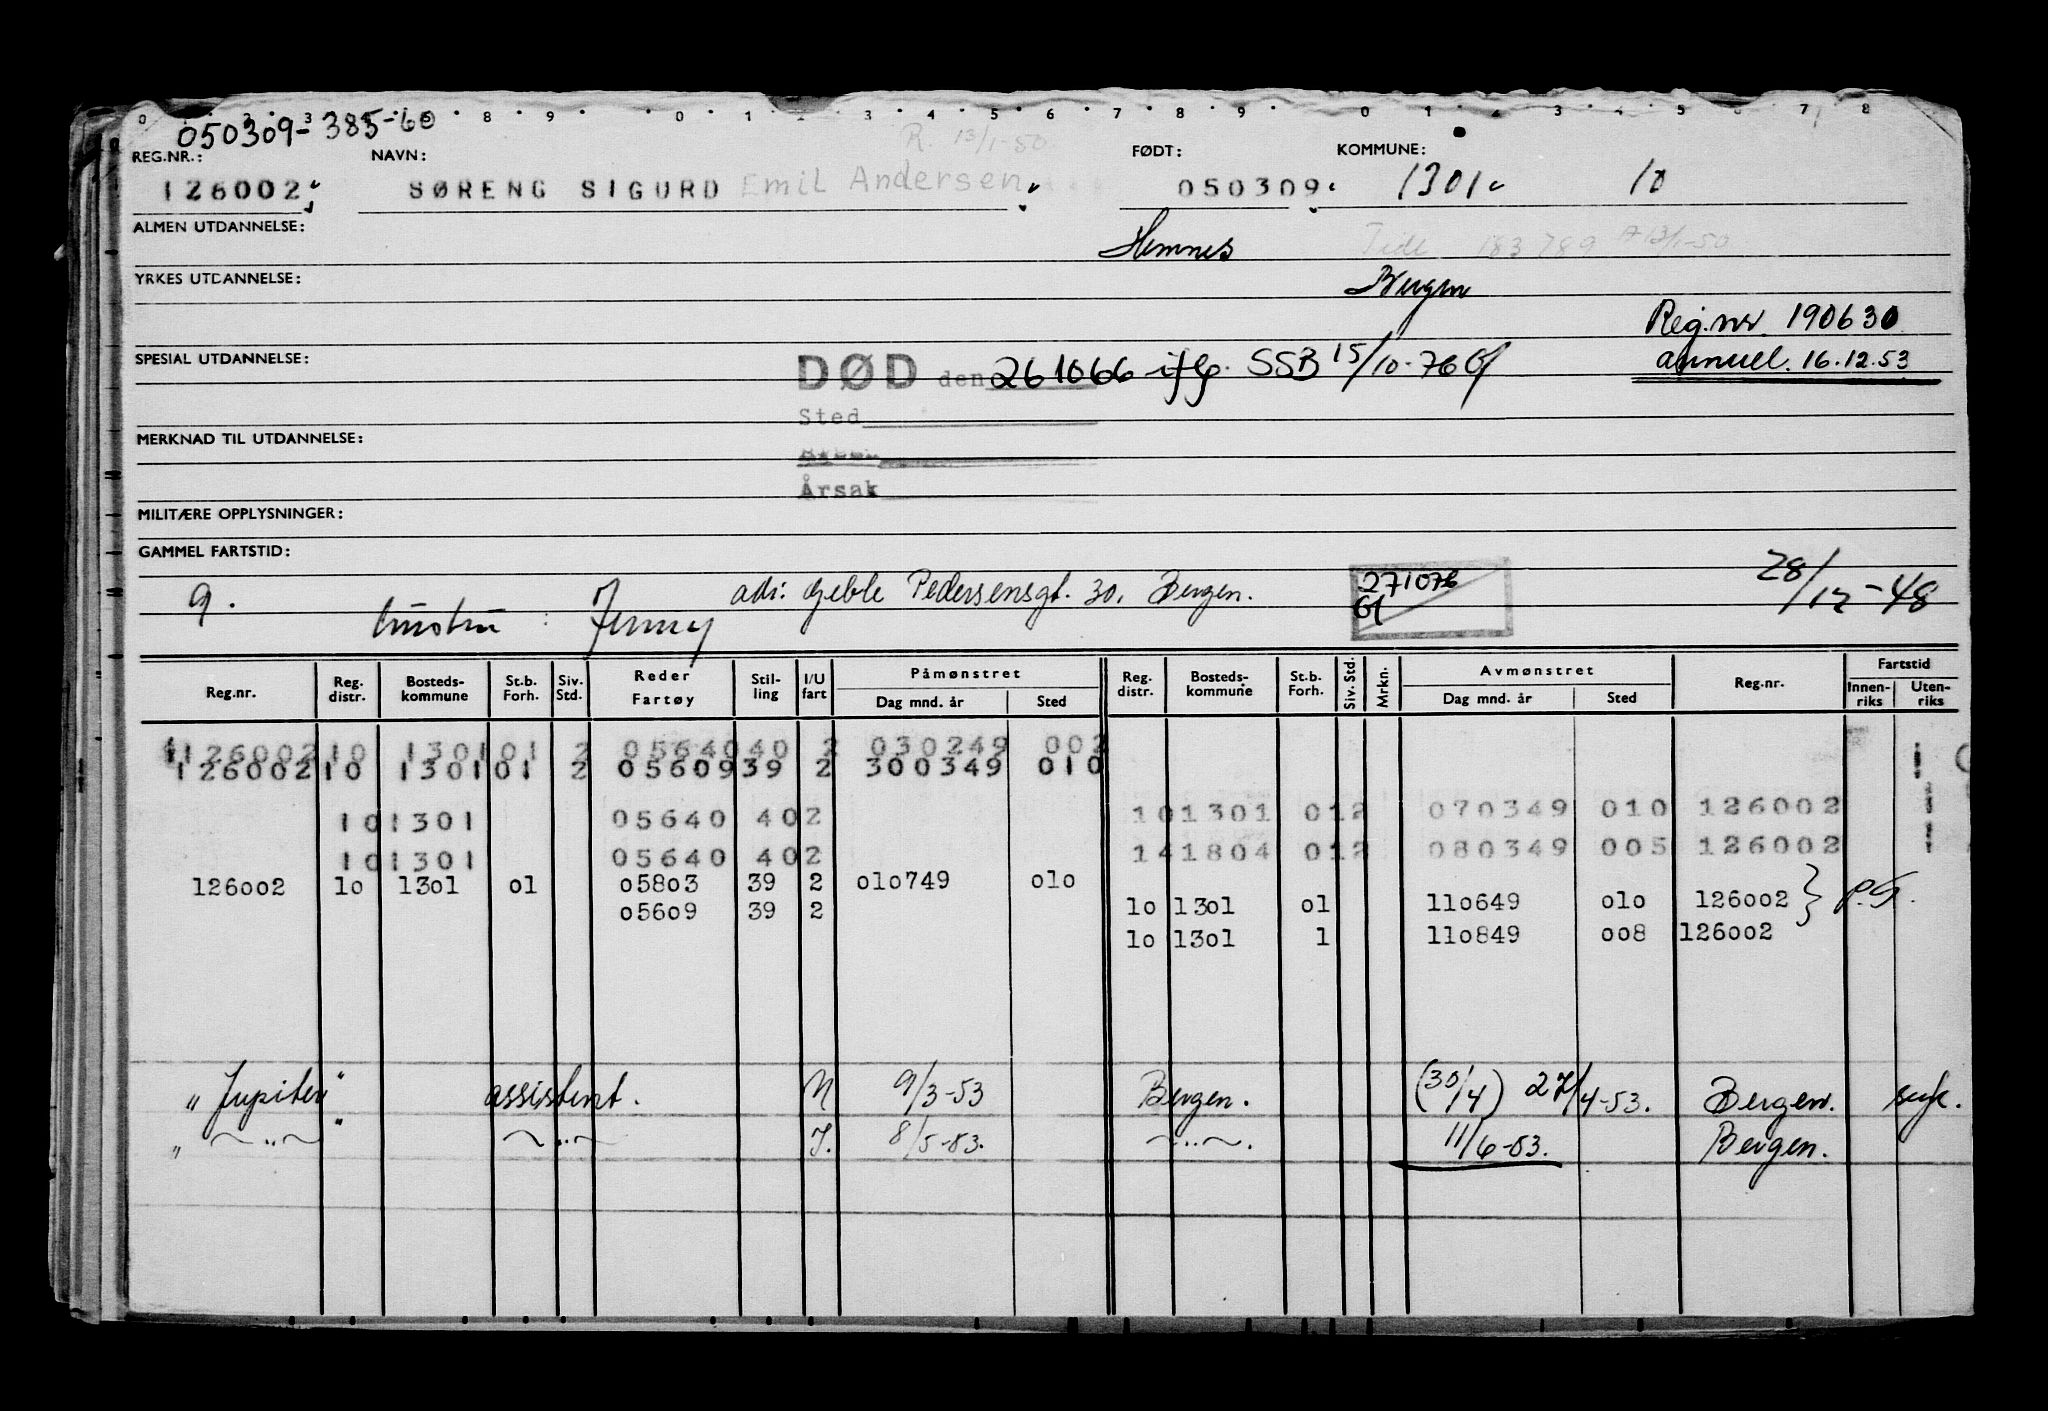 050309-385-60
R. 13/1-50
REG.NR.: NAVN: FØDT: KOMMUNE:
126002 SØRENG SIGURD Emil Andersen 050309 1301 10
ALMEN UTDANNELSE: Hemnes 183789 13/1-50
YRKES UTDANNELSE: Bergen
Reg.nr. 190630
SPESIAL UTDANNELSE: DØD den 261066 iflg. SSB 15/10-76 annuel. 16.12.53
Sted
MERKNAD TIL UTDANNELSE:
Årsak
MILITÆRE OPPLYSNINGER:
GAMMEL FARTSTID:
g. hustru : Jenny adr: Geble Pedersensgt. 30, Bergen. 271076 28/12-48
Reg.nr. Reg. distr. Bosteds-kommune St.b. Forh. Siv. Std. Reder Fartøy Stil-ling I/U fart Påmønstret Dag mnd. år Sted Reg. distr. Bosteds-kommune St.b. Forh. Siv. Std. Mrkn. Avmønstret Dag mnd. år Sted Reg.nr. Fartstid Innen-riks Uten-riks
126002 10 1301 01 2 05640 40 2 030249 002
126002 10 1301 01 2 05609 39 2 300349 010 1
10 1301 05640 40 2 10 1301 01 2 070349 010 126002 1
10 1301 05640 40 2 14 1804 01 2 080349 005 126002 1
126002 10 1301 01 05803 39 2 010749 010
05609 39 2 10 1301 01 110649 010 126002 P.G.
10 1301 1 110849 008 126002
"Jupiter" assistent. N 9/3-53 Bergen. (30/4) 27/4-53. Bergen. syk.
" ~..~ " ~..~ I. 8/5-53. ~..~. 11/6-53. Bergen.